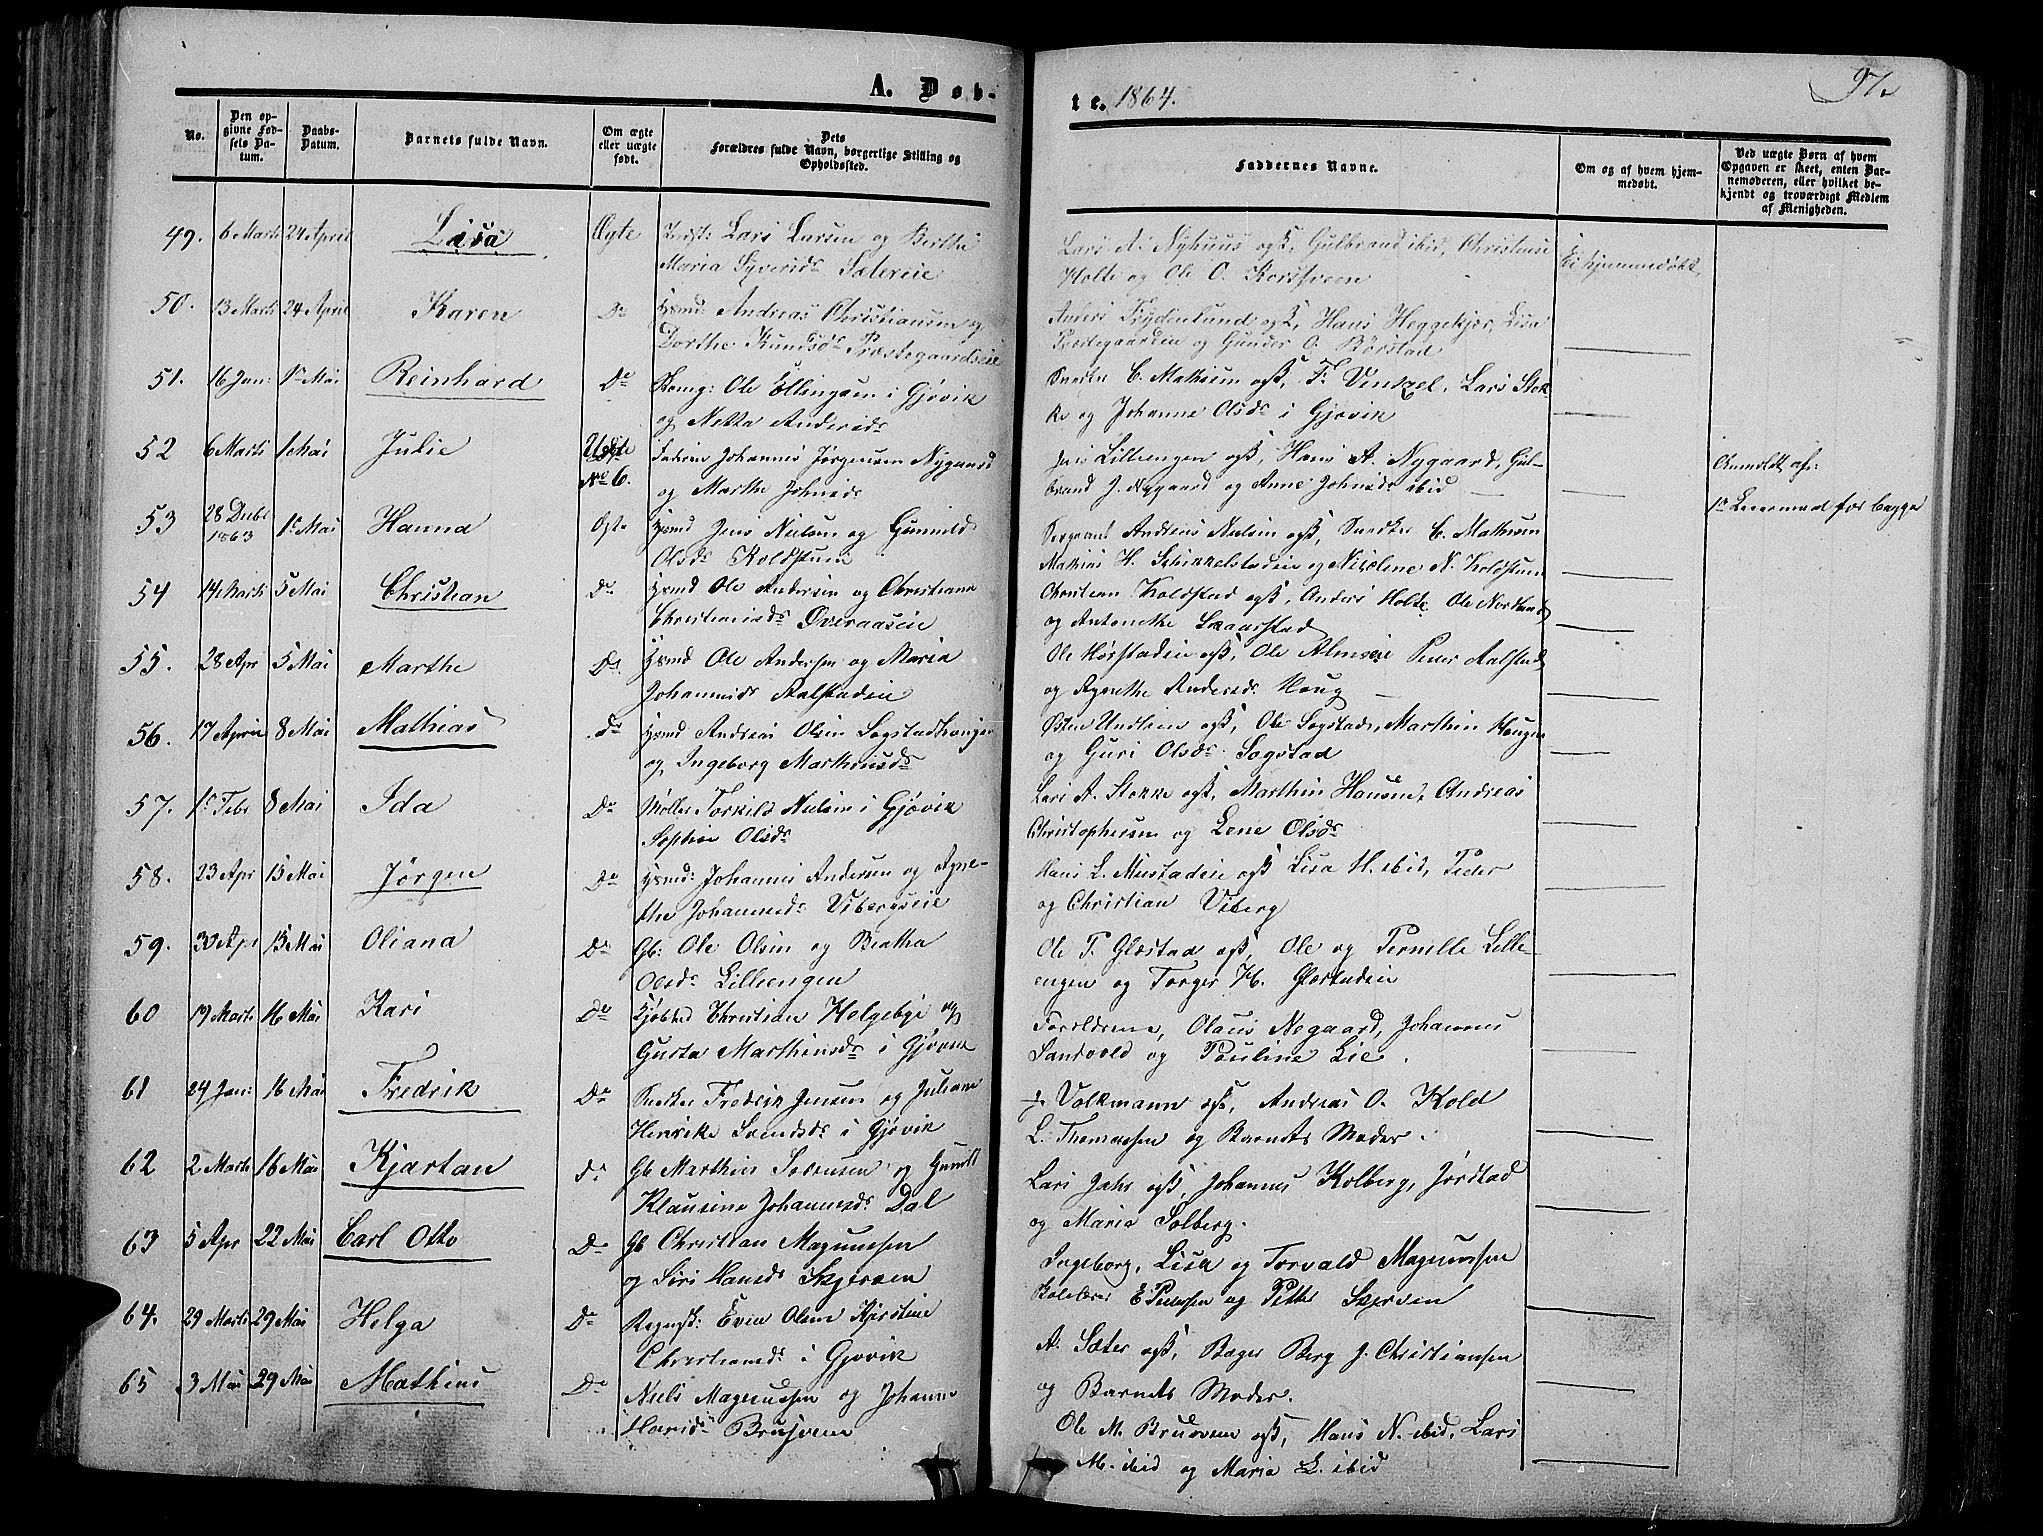 A. Døb-
te. 1864.
97.
No.
Den op-
givne Fød-
sels Da-
tum.
Daabs-
Datum.
Barnets fulde Navn.
Om ægte
eller uægte
født.
Dets
Forældres fulde Navn, borgerlige Stilling og
Opholdssted.
Faddernes Navne.
Om og af hvem hjem-
medøbt.
Ved uægte Børn af hvem
Opgaven er skeet, enten Bar-
nemoderen, eller hvilket be-
kjendt og troværdigt Medlem
af Menigheden.
49. 6 Marts 24 April Lisa Ægte Lars Larsen og Berthe
Maria Syversdr Sætereie
Lars A. Nyhuus ogß, Gulbrand ibid, Christine
Holte og Ole O. Korssveen
Ei hjemmedøbt
50. 13 Marts 24 April Karen Do Hsmd Andreas Christiansen og
Dorthe Knudsdr Præstegaardseie
Anders Frydenlund ogß, Hans Heggekjær, Lisa
Præstegaarden og Gunder O. Børstad
51. 16 Jan: 1ste Mai Reinhard Do Ole Ellingsen i Gjøvik
og Netta Andersdr
Snedker C. Mathisen ogß, F. Vinzel, Lars Stok-
ke og Johanne Olsdr i Gjøvik
52 6 Marts 1 Mai Julie Uægte
No 6.
Johannes Jørgensen Nygaard
og Marthe Johnsdr
Lillengen ogß, Hans A. Nygaard, Gul-
brand J. Nygaard og Anne Johnsdr ibid
Anmeldt af:
1ste Leiermaal for begge
53 28 Decbr
1863 1ste Mai Hanna Ægte Hsmd Jens Nielsen og Gunnild
Olsdr Koldstuen
Sergeant Andreas Nielsen ogß, Snedker C. Mathisen
Mathias H. Schikkelstadeie og Nicoline N. Koldstuen
54 14 Marts 5 Mai Christian Do Hsmd Ole Andersen og Christiana
Christiansdr Øveraaseie
Christian Koldstad ogß, Anders Holte, Ole Nordland
og Antonette Skaarstad
55. 28 Apr 5 Mai Marthe Do Hsmd Ole Andersen og Maria
Johannesdr Aalstadeie
Ole Hørstadeie ogß, Ole Almseie Peder Aalstad
og Agnethe Andersdr Haug
56. 17 April 8 Mai Mathias Do Hsmd Andreas Olsen Sogstadhaugen
og Ingeborg Marthiusdr
Østen Undlien ogß, Ole Sogstad, Marthin Haugen
og Guri Olsdr Sogstad
57. 1ste Febr 8 Mai Ida Do Møller Torkild Nielsen i Gjøvik
Sophie Olsdr
Lars A. Stokke ogß, Marthin Hansen, Andreas
Christophersen og Lene Olsdr
58. 23 Apr 15 Mai Jørgen Do Hsmd: Johannes Andersen og Agne-
the Johannesdr Vibergseie
Hans L. Mustadeie ogß Lisa H. ibid, Peder
og Christian Viberg
59. 30 Apr 15 Mai Oliana Do Gb: Ole Olsen og Beatha
Olsdr Lillengen
Ole T. Glæstad ogß, Ole og Pernille Lille-
engen og Torger H. Glæstadeie
60 19 Marts 16 Mai Kari Do Kjøbmd Christian Helgebye og
Gusta Marthinsdr i Gjøvik
Forældrene, Olaus Negaard, Johannes
Sandvold og Pauline Lie.
61 24 Jan: 16 Mai Fredrik Do Snedker Fredrik Jensen og Juliane
Henrike Svendsdr i Gjøvik
J. Volkmann ogß, Andreas O. Kold
L. Thomassen og Barnets Moder.
62 2 Marts 16 Mai Kjartan Do Gb Marthin Sørensen og Gunild
Klausine Johannesdr Dal
Lars Jahr ogß, Johannes Kolberg, Jørstad
og Maria Solberg.
63 5 Apr 22 Mai Carl Otto Do Gb Christian Magnussen
og Siri Hansdr Skjerven
Ingeborg, Lisa og Torvald Magnussen
Skolelærer E. Pedersen og Petter Skjerven
64. 29 Marts 29 Mai Helga Do Regnsk: Even Olsen Kjerstine
Christiansdr i Gjøvik
A. Sæter ogß, Bager Berg J. Christiansen
og Barnets Moder.
65 3 Mai 29 Mai Mathius Do Niels Magnussen og Johanne
Hansdr Brusveen
Ole M. Brusveen ogß, Hans N. ibid, Lars
M. ibid og Maria L. ibid